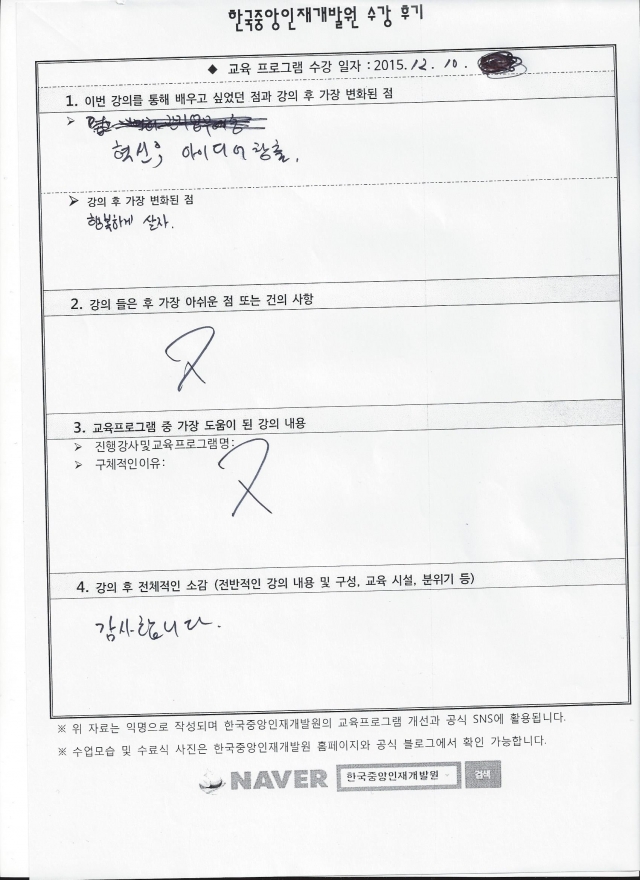 한국중앙인재개발원 수강 후기
◆ 교육 프로그램 수강 일자 : 2015. 12. 10.
1. 이번 강의를 통해 배우고 싶었던 점과 강의 후 가장 변화된 점
➤
혁신, 아이디어 창출.
➤ 강의 후 가장 변화된 점
행복하게 살자.
2. 강의 들은 후 가장 아쉬운 점 또는 건의 사항
X
3. 교육프로그램 중 가장 도움이 된 강의 내용
➤ 진행강사및교육프로그램명:
➤ 구체적인이유:
X
4. 강의 후 전체적인 소감 (전반적인 강의 내용 및 구성, 교육 시설, 분위기 등)
감사합니다.
※ 위 자료는 익명으로 작성되며 한국중앙인재개발원의 교육프로그램 개선과 공식 SNS에 활용됩니다.
※ 수업모습 및 수료식 사진은 한국중앙인재개발원 홈페이지와 공식 블로그에서 확인 가능합니다.
NAVER 한국중앙인재개발원 검색